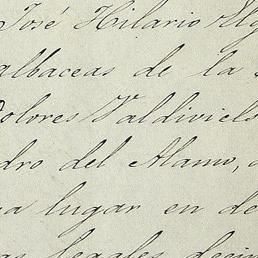 José Hilario
albaceas de la
Dolores Valdiviels
dro del Alamo,
lugar en de
legales